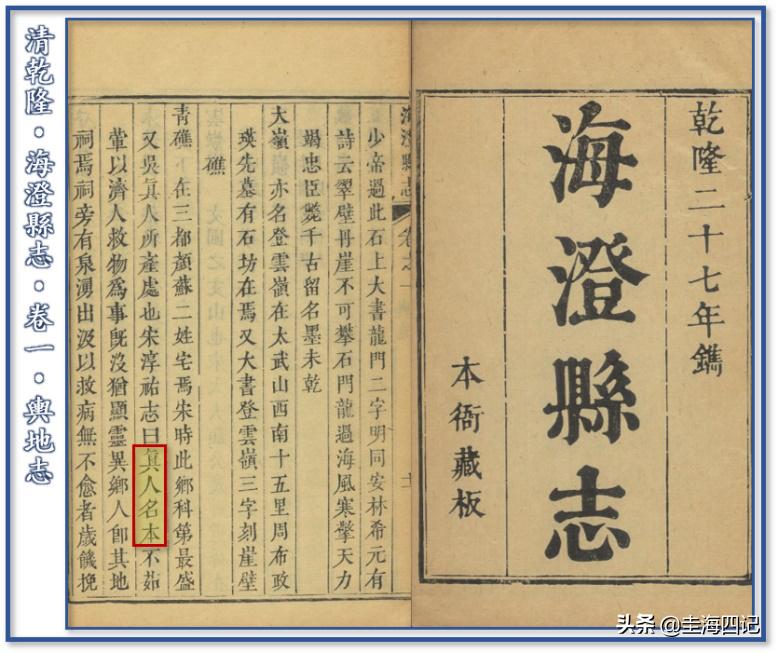 清乾隆·海澄縣志·卷一·輿地志
乾隆二十七年鐫
海澄縣志
本衙藏板
海澄縣志 卷之一
少帝過此石上大書龍門二字明同安林希元有
詩云翠壁丹崖不可攀石門龍過海風寒擎天力
竭忠臣斃千古留名墨未乾
大嶺嶺亦名登雲嶺在太武山西南十五里周布政
瑛先墓有石坊在焉又大書登雲嶺三字刻崖壁
礁
青礁 在三都顏蘇二姓宅焉宋時此鄉科第最盛
又吳眞人所產處也宋淳祐志曰眞人名本不茹
葷以濟人救物爲事旣沒猶顯靈異鄉人卽其地
祠焉祠旁有泉湧出汲以救病無不愈者歲饑挽
头条 @圭海四记